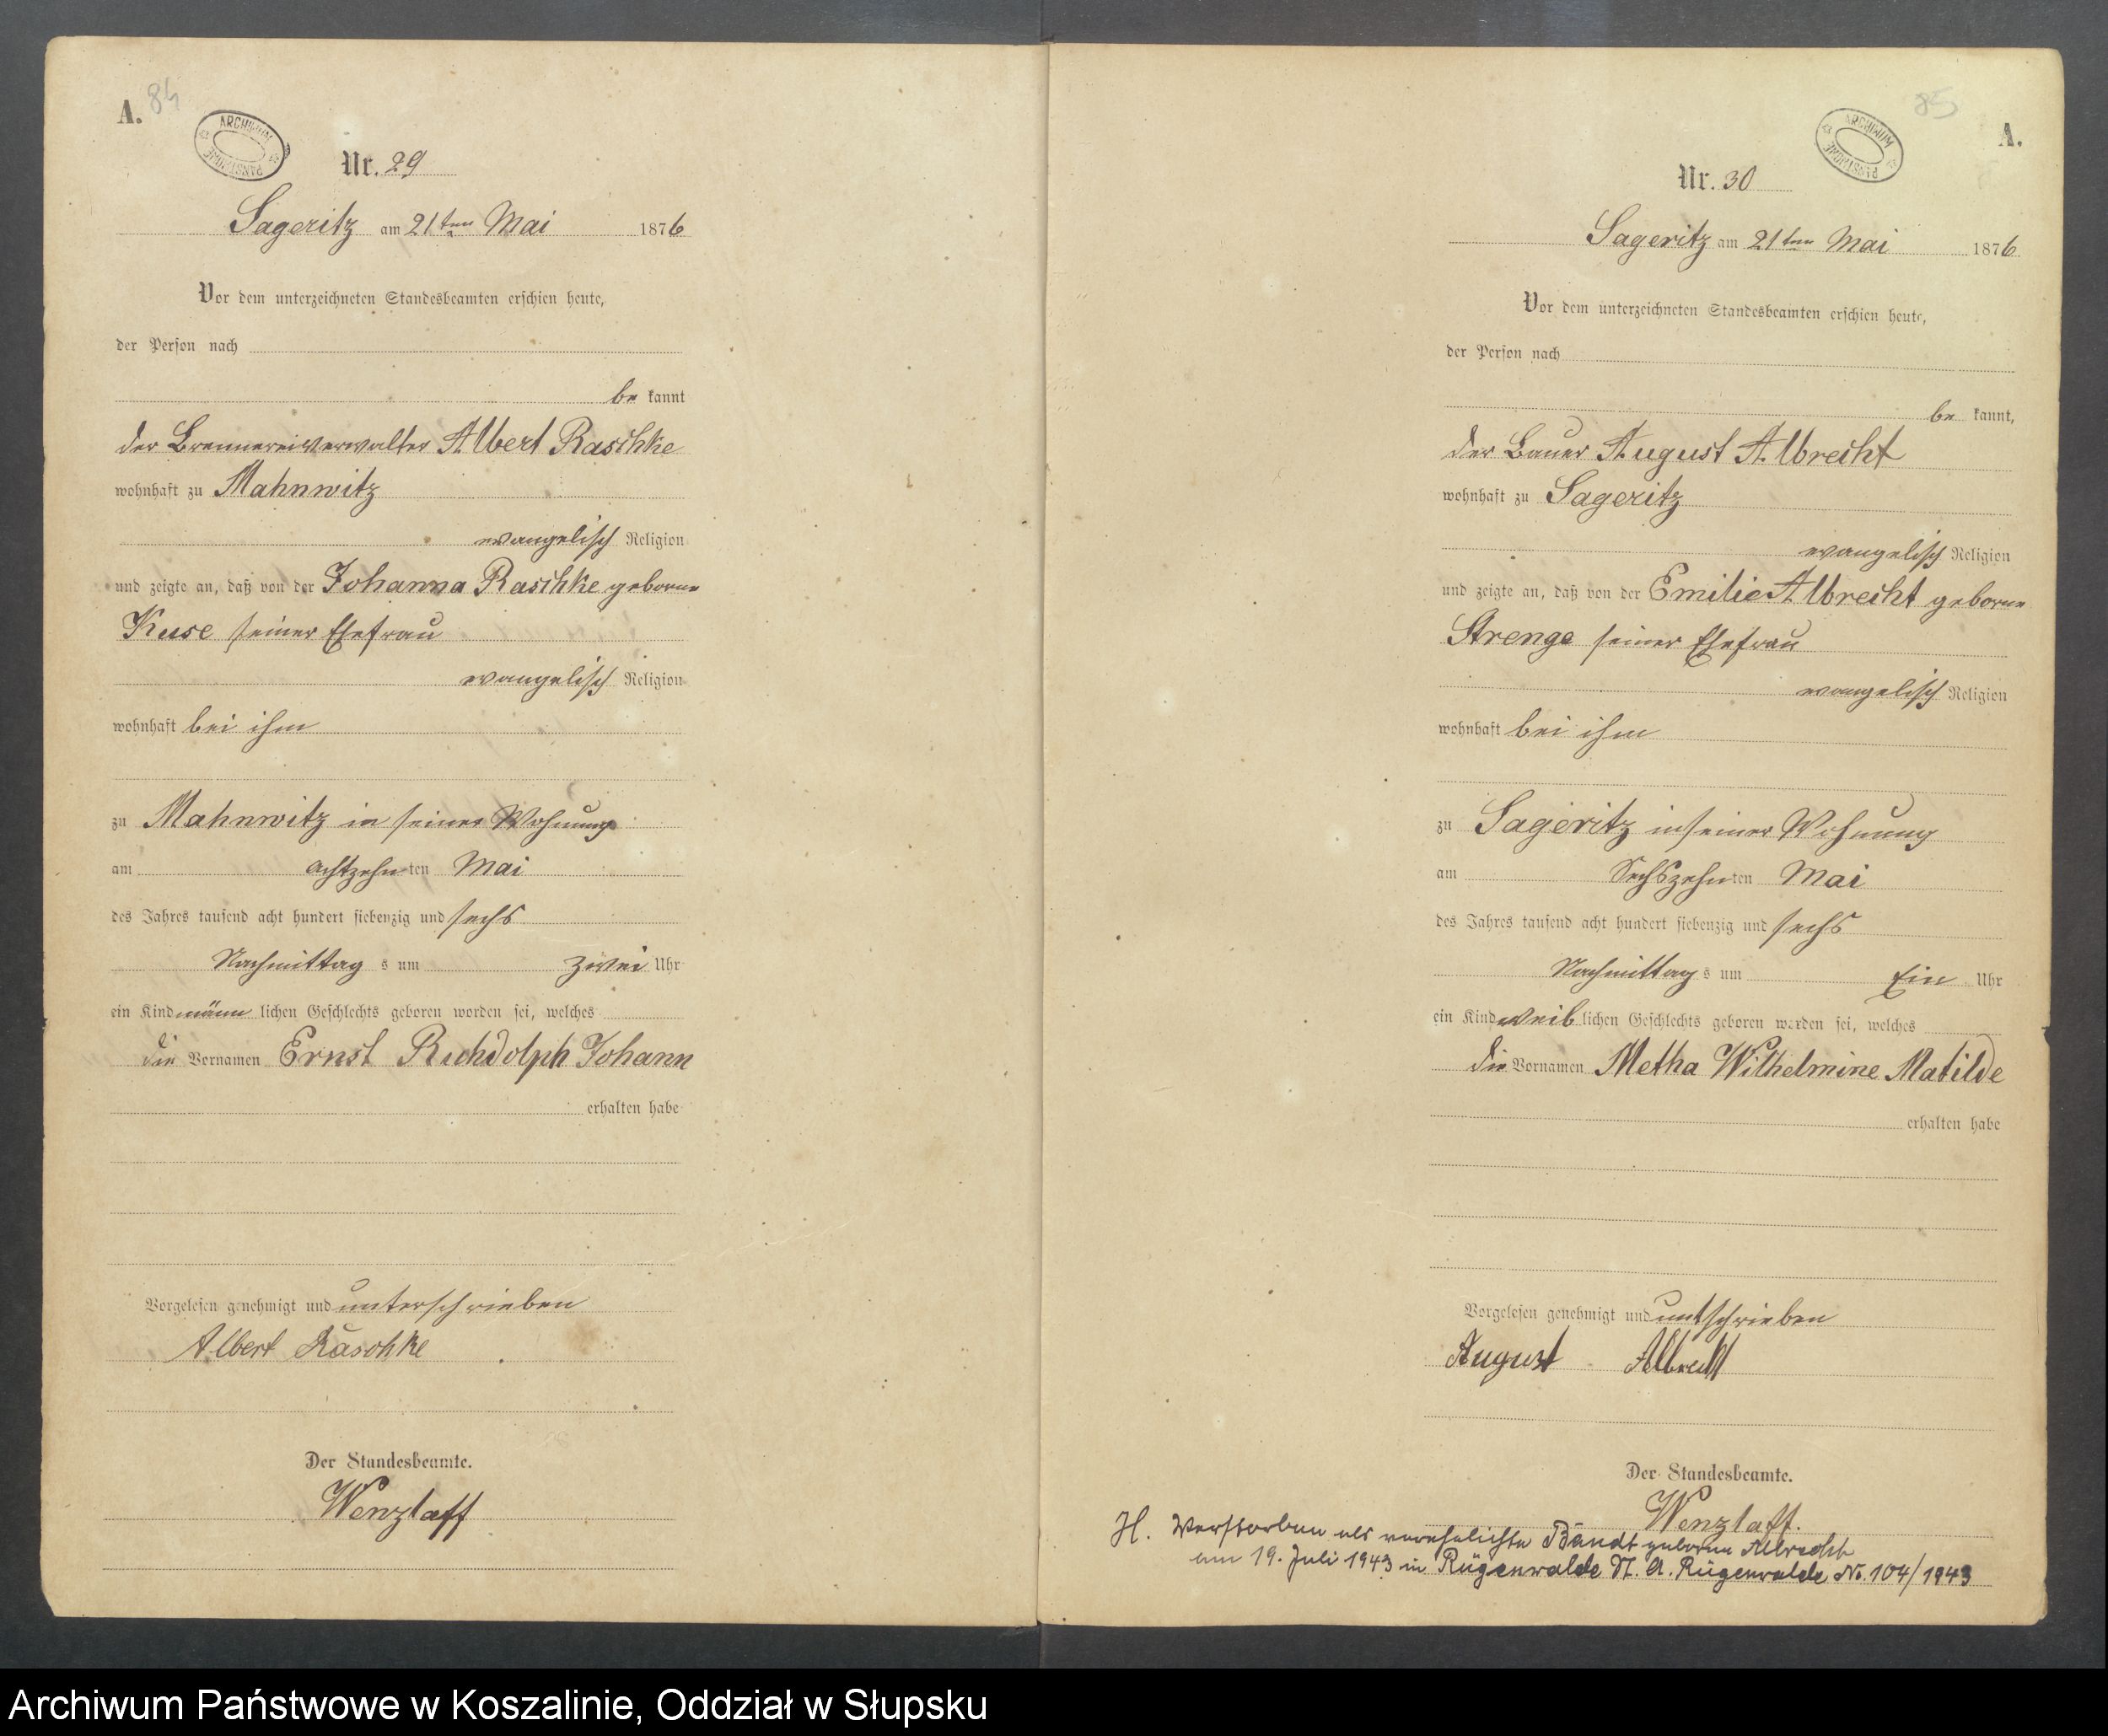 A. 84
ARCHIWUM PAŃSTWOWE
Nr. 29
Sageritz am 21ten Mai 1876
Vor dem unterzeichneten Standesbeamten erschien heute,
der Person nach
be kannt
der Brennereiverwalter Albert Raschke
wohnhaft zu Mahnwitz
evangelisch Religion
und zeigte an, daß von der Johanna Raschke geborne
Kuse seiner Ehefrau
evangelisch Religion
wohnhaft bei ihm
zu Mahnwitz in seiner Wohnung
am achtzehnten Mai
des Jahres tausend acht hundert siebenzig und sechs
Nachmittags um zwei Uhr
ein Kind männlichen Geschlechts geboren worden sei, welches
die Vornamen Ernst Ruhdolph Johann
erhalten habe
Vorgelesen genehmigt und unterschrieben
Albert Raschke
Der Standesbeamte.
Wenzlaff
85
A.
ARCHIWUM PAŃSTWOWE
Nr. 30
Sageritz am 21ten Mai 1876
Vor dem unterzeichneten Standesbeamten erschien heute,
der Person nach
be kannt,
der Bauer August Albrecht
wohnhaft zu Sageritz
evangelisch Religion
und zeigte an, daß von der Emilie Albrecht geborne
Strenge seiner Ehefrau
evangelisch Religion
wohnhaft bei ihm
zu Sageritz in seiner Wohnung
am Sechszehnten Mai
des Jahres tausend acht hundert siebenzig und sechs
Nachmittags um Ein Uhr
ein Kind weiblichen Geschlechts geboren worden sei, welches
die Vornamen Metha Wilhelmine Matilde
erhalten habe
Vorgelesen genehmigt und untschrieben
August Albrecht
Der Standesbeamte.
Wenzlaff.
H. Verstorben als verehelichte Bandt geborne Albrecht
am 19. Juli 1943 in Rügenwalde St. A. Rügenwalde No. 104/1943
Archiwum Państwowe w Koszalinie, Oddział w Słupsku